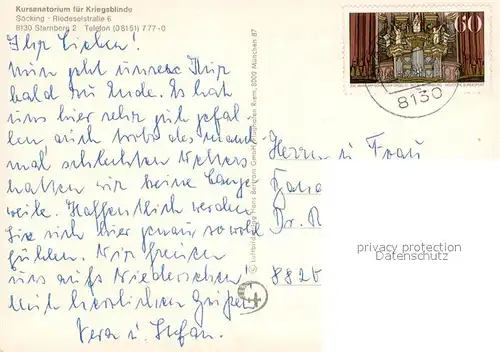 Kursanatorium für Kriegsblinde
Söcking - Riedeselstraße 6
8130 Starnberg 2 Telefon (08151) 7 77-0
60
8130
Ihr Lieben!
Nun geht unsere Kur
bald zu Ende. Es hat
uns hier sehr gut gefal-
len, auch trotz des manch-
mal schlechten Wetters
hatten wir keine Lange-
weile. Hoffentlich werden
Sie sich hier genau so wohl
fühlen. Wir freuen
uns aufs Wiedersehen
Mit herzlichen Grüßen
Vera u. Stefan.
Herrn u Frau
Dr. R
8820
privacy protection
Datenschutz
© Luftbildverlag Hans Bertram GmbH, Flughafen Riem, 8000 München 87